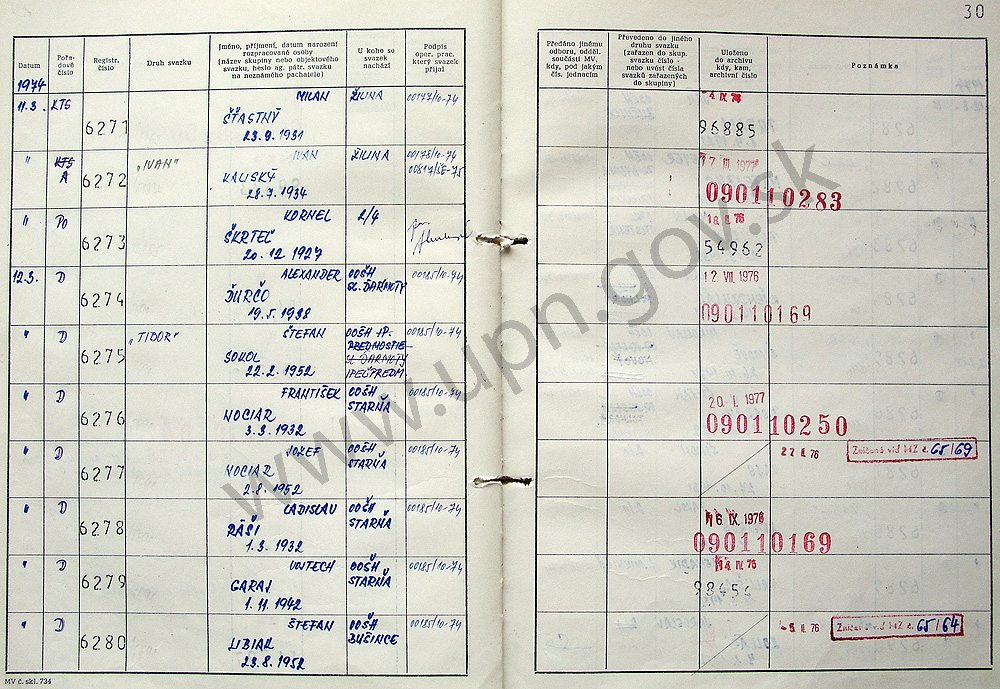 30
Datum
Pořadové číslo
Registr. číslo
Druh svazku
Jméno, příjmení, datum narození rozpracované osoby (název skupiny nebo objektového svazku, heslo ag. pátr. svazku na neznámého pachatele)
U koho se svazek nachází
Podpis oper. prac. který svazek přijal
Předáno jinému odboru, odděl. součásti MV, kdy, pod jakým čís. jednacím
Převedeno do jiného druhu svazku (zařazen do skup. svazku číslo - nebo uvést čísla svazků zařazených do skupiny)
Uloženo do archivu kdy, kam, archivní číslo
Poznámka
1974
11.3. KTS 6271 MILAN ŽILINA 00177/10-74
ŠŤASTNÝ
23.9.1931
IV. 76
96885
" KTS A 6272 „IVAN" IVAN ŽILINA 00178/10-74
KALISKÝ 00817/ŠE-75
28.7.1934
7 VII 1977
090110283
" PO 6273 KORNEL 2/4
ŠKRTEĽ
20.12.1927
II. 76
54962
12.3. D 6274 ALEXANDER OOŠH 00185/10-74
ĎURČO SL. ĎARMOTY
19.5.1938
12 VII. 1976
090110169
" D 6275 „TIBOR" ŠTEFAN OOŠH IP. 00185/10-74
SOKOL SL. ĎARMOTY
22.2.1952
" D 6276 FRANTIŠEK OOŠH 00185/10-74
NOCIAR STARŇA
3.3.1932
20. I. 1977
090110250
" D 6277 JOZEF OOŠH 00185/10-74
NOCIAR STARŇA
2.8.1952
II. 76 Zničené viď MZ č. 65/69
" D 6278 LADISLAV OOŠH 00185/10-74
RÁŠI STARŇA
1.3.1932
16. IX. 1976
090110169
" D 6279 VOJTECH OOŠH 00185/10-74
GARAJ STARŇA
1.11.1942
14 IV. 76
98454
" D 6280 ŠTEFAN OOŠH 00185/10-74
LIBIAK BUŠINCE
23.8.1952
II. 76 Zničené viď MZ č. 65/64
MV č. skl. 734
www.upn.gov.sk